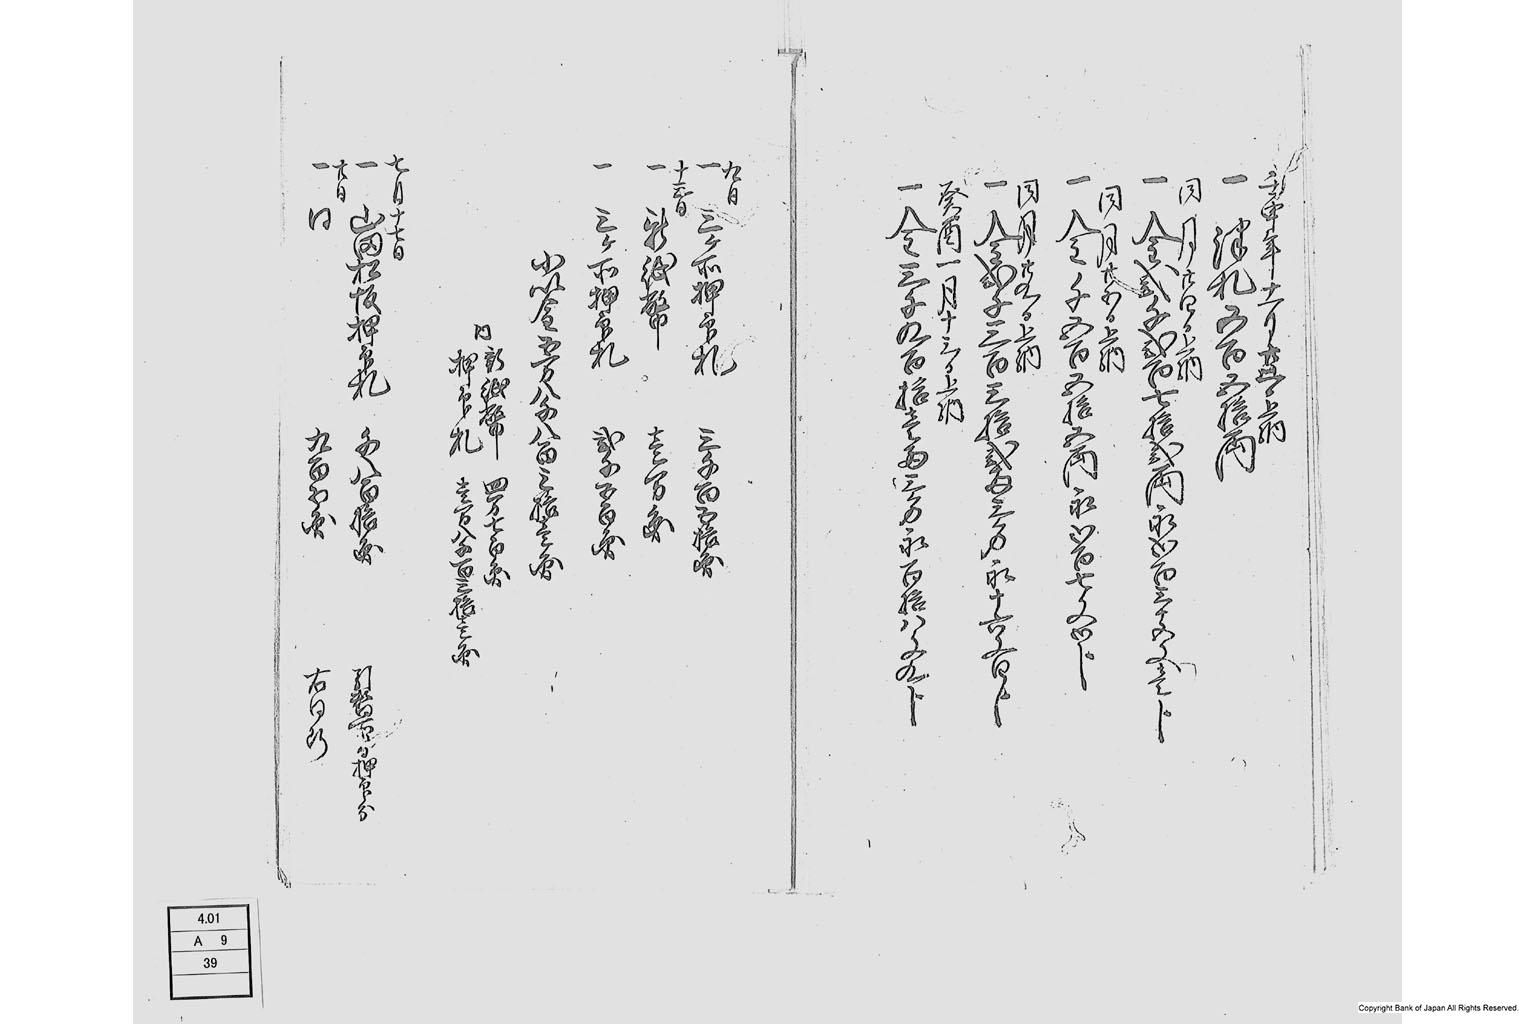 壬申年十一月廿五日上納
一 津札五百五拾両
同月廿四日上納
一 金弐千弐百七拾弐両永四百三拾文壱卜
同月廿五日上納
一 金千五百五拾五両永四百七文四卜
同月廿九日上納
一 金弐千三百三拾弐両三分永十六文四卜
癸酉一月十三日上納
一 金三千九百拾壱両三分永百拾八文九卜
九日
一 三ヶ所押印札 三千百五拾両
十三日
一 新紙幣 壱万両
一 三ヶ所押印札 弐千五百両
小以金五万八千八百三拾壱両
内 新紙幣 四万七百両
押印札 壱万八千百三拾壱両
七月十七日
一 山田松坂押印札 千八百拾両 引替所押印分
廿日
一 同 九百 両 右同断
4.01
A 9
39
Copyright Bank of Japan All Rights Reserved.